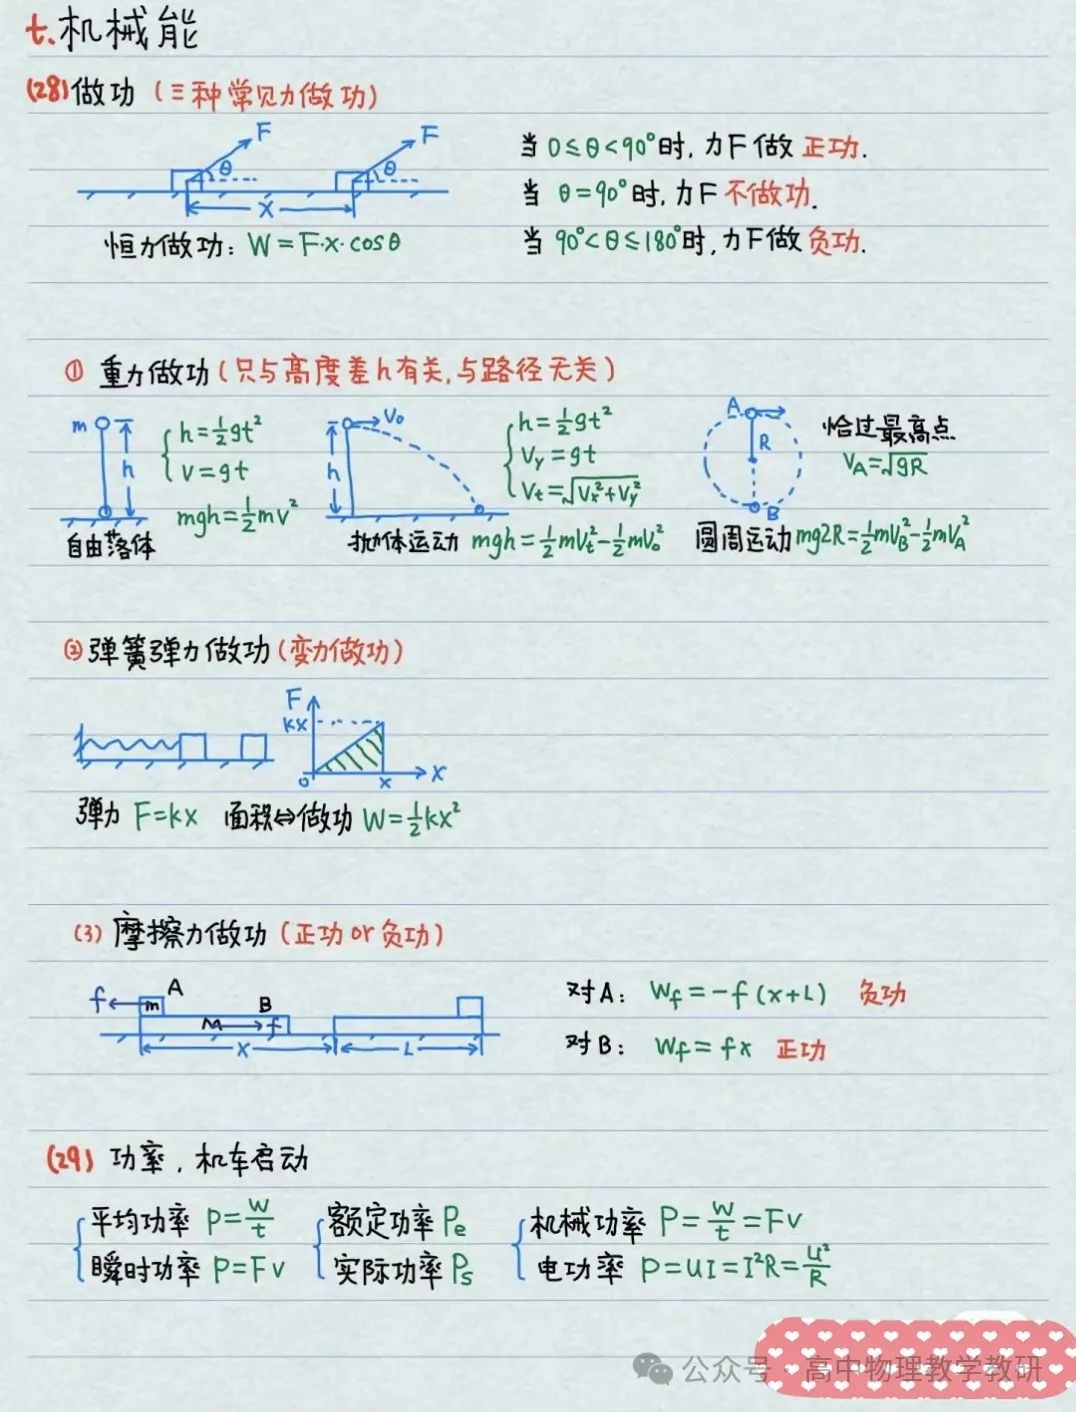 七.机械能
(28)做功（三种常见力做功）
F F
θ θ
x
恒力做功：W=F·x·cosθ
当 0≤θ<90°时,力F做 正功.
当 θ=90°时,力F 不做功.
当 90°<θ≤180°时,力F做 负功.
① 重力做功(只与高度差h有关,与路径无关)
m h
h=½gt²
v=gt
mgh=½mv²
自由落体
V₀
h
h=½gt²
Vy=gt
Vt=√(Vx²+Vy²)
抛体运动 mgh=½mVt²-½mV₀²
A
R
B
恰过最高点
VA=√gR
圆周运动mg2R=½mVB²-½mVA²
②弹簧弹力做功(变力做功)
F
kx
0 x x
弹力 F=kx 面积⇔做功 W=½kx²
(3) 摩擦力做功（正功or负功）
f m A B
M f
x L
对A: Wf=-f(x+L) 负功
对B: Wf=fx 正功
(29) 功率，机车启动
平均功率 P=W/t
瞬时功率 P=Fv
额定功率 Pe
实际功率 Ps
机械功率 P=W/t=Fv
电功率 P=UI=I²R=U²/R
公众号·高中物理教学教研